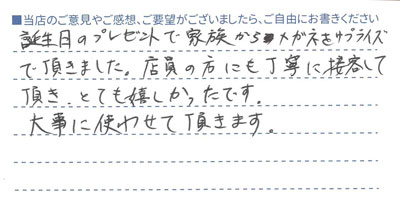 ■当店のご意見やご感想、ご要望がございましたら、ご自由にお書きください
誕生日のプレゼントで家族からメガネをサプライズ
で頂きました。店員の方にも丁寧に接客して
頂き、とても嬉しかったです。
大事に使わせて頂きます。